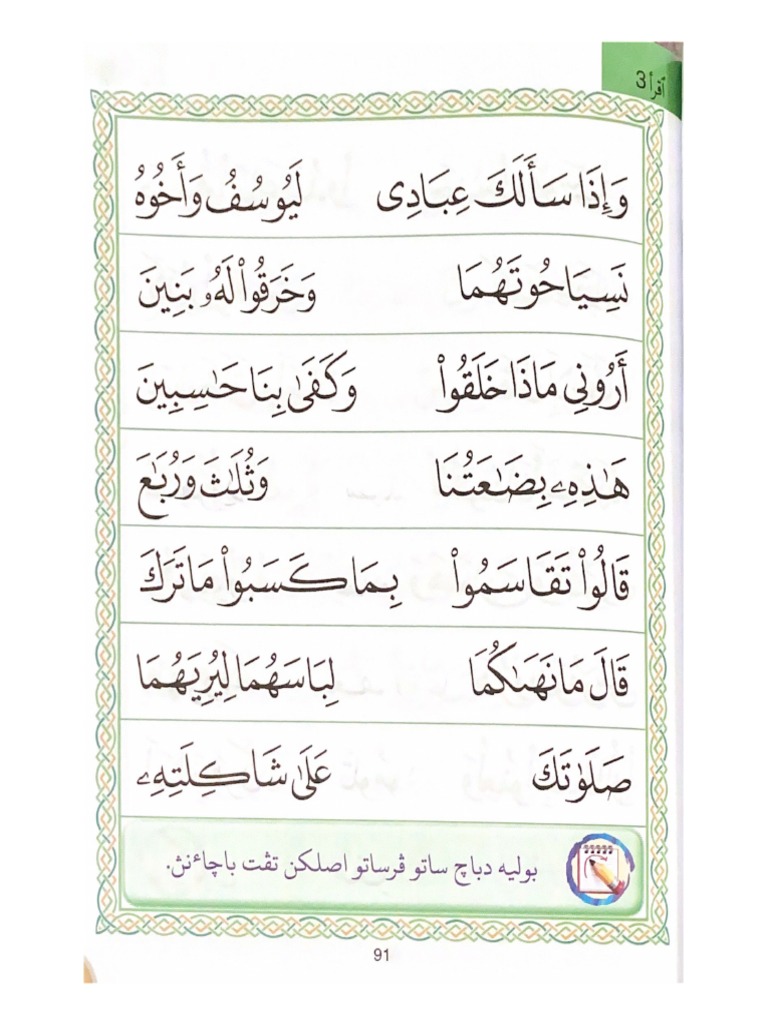 اقرأ 3
وَإِذَا سَأَلَكَ عِبَادِى لَيُوسُفُ وَأَخُوهُ
نَسِيَا حُوتَهُمَا وَخَرَقُوا۟ لَهُۥ بَنِينَ
أَرُونِي مَاذَا خَلَقُوا۟ وَكَفَىٰ بِنَا حَـٰسِبِينَ
هَـٰذِهِۦ بِضَـٰعَتُنَا وَثُلَـٰثَ وَرُبَـٰعَ
قَالُوا۟ تَقَاسَمُوا۟ بِمَا كَسَبُوا۟ مَا تَرَكَ
قَالَ مَا نَهَىٰكُمَا لِبَاسَهُمَا لِيُرِيَهُمَا
صَلَوٰتَكَ عَلَىٰ شَاكِلَتِهِۦ
بوليه دباچ ساتو ڤرساتو اصلكن تڤت باچاءنڽ.
91